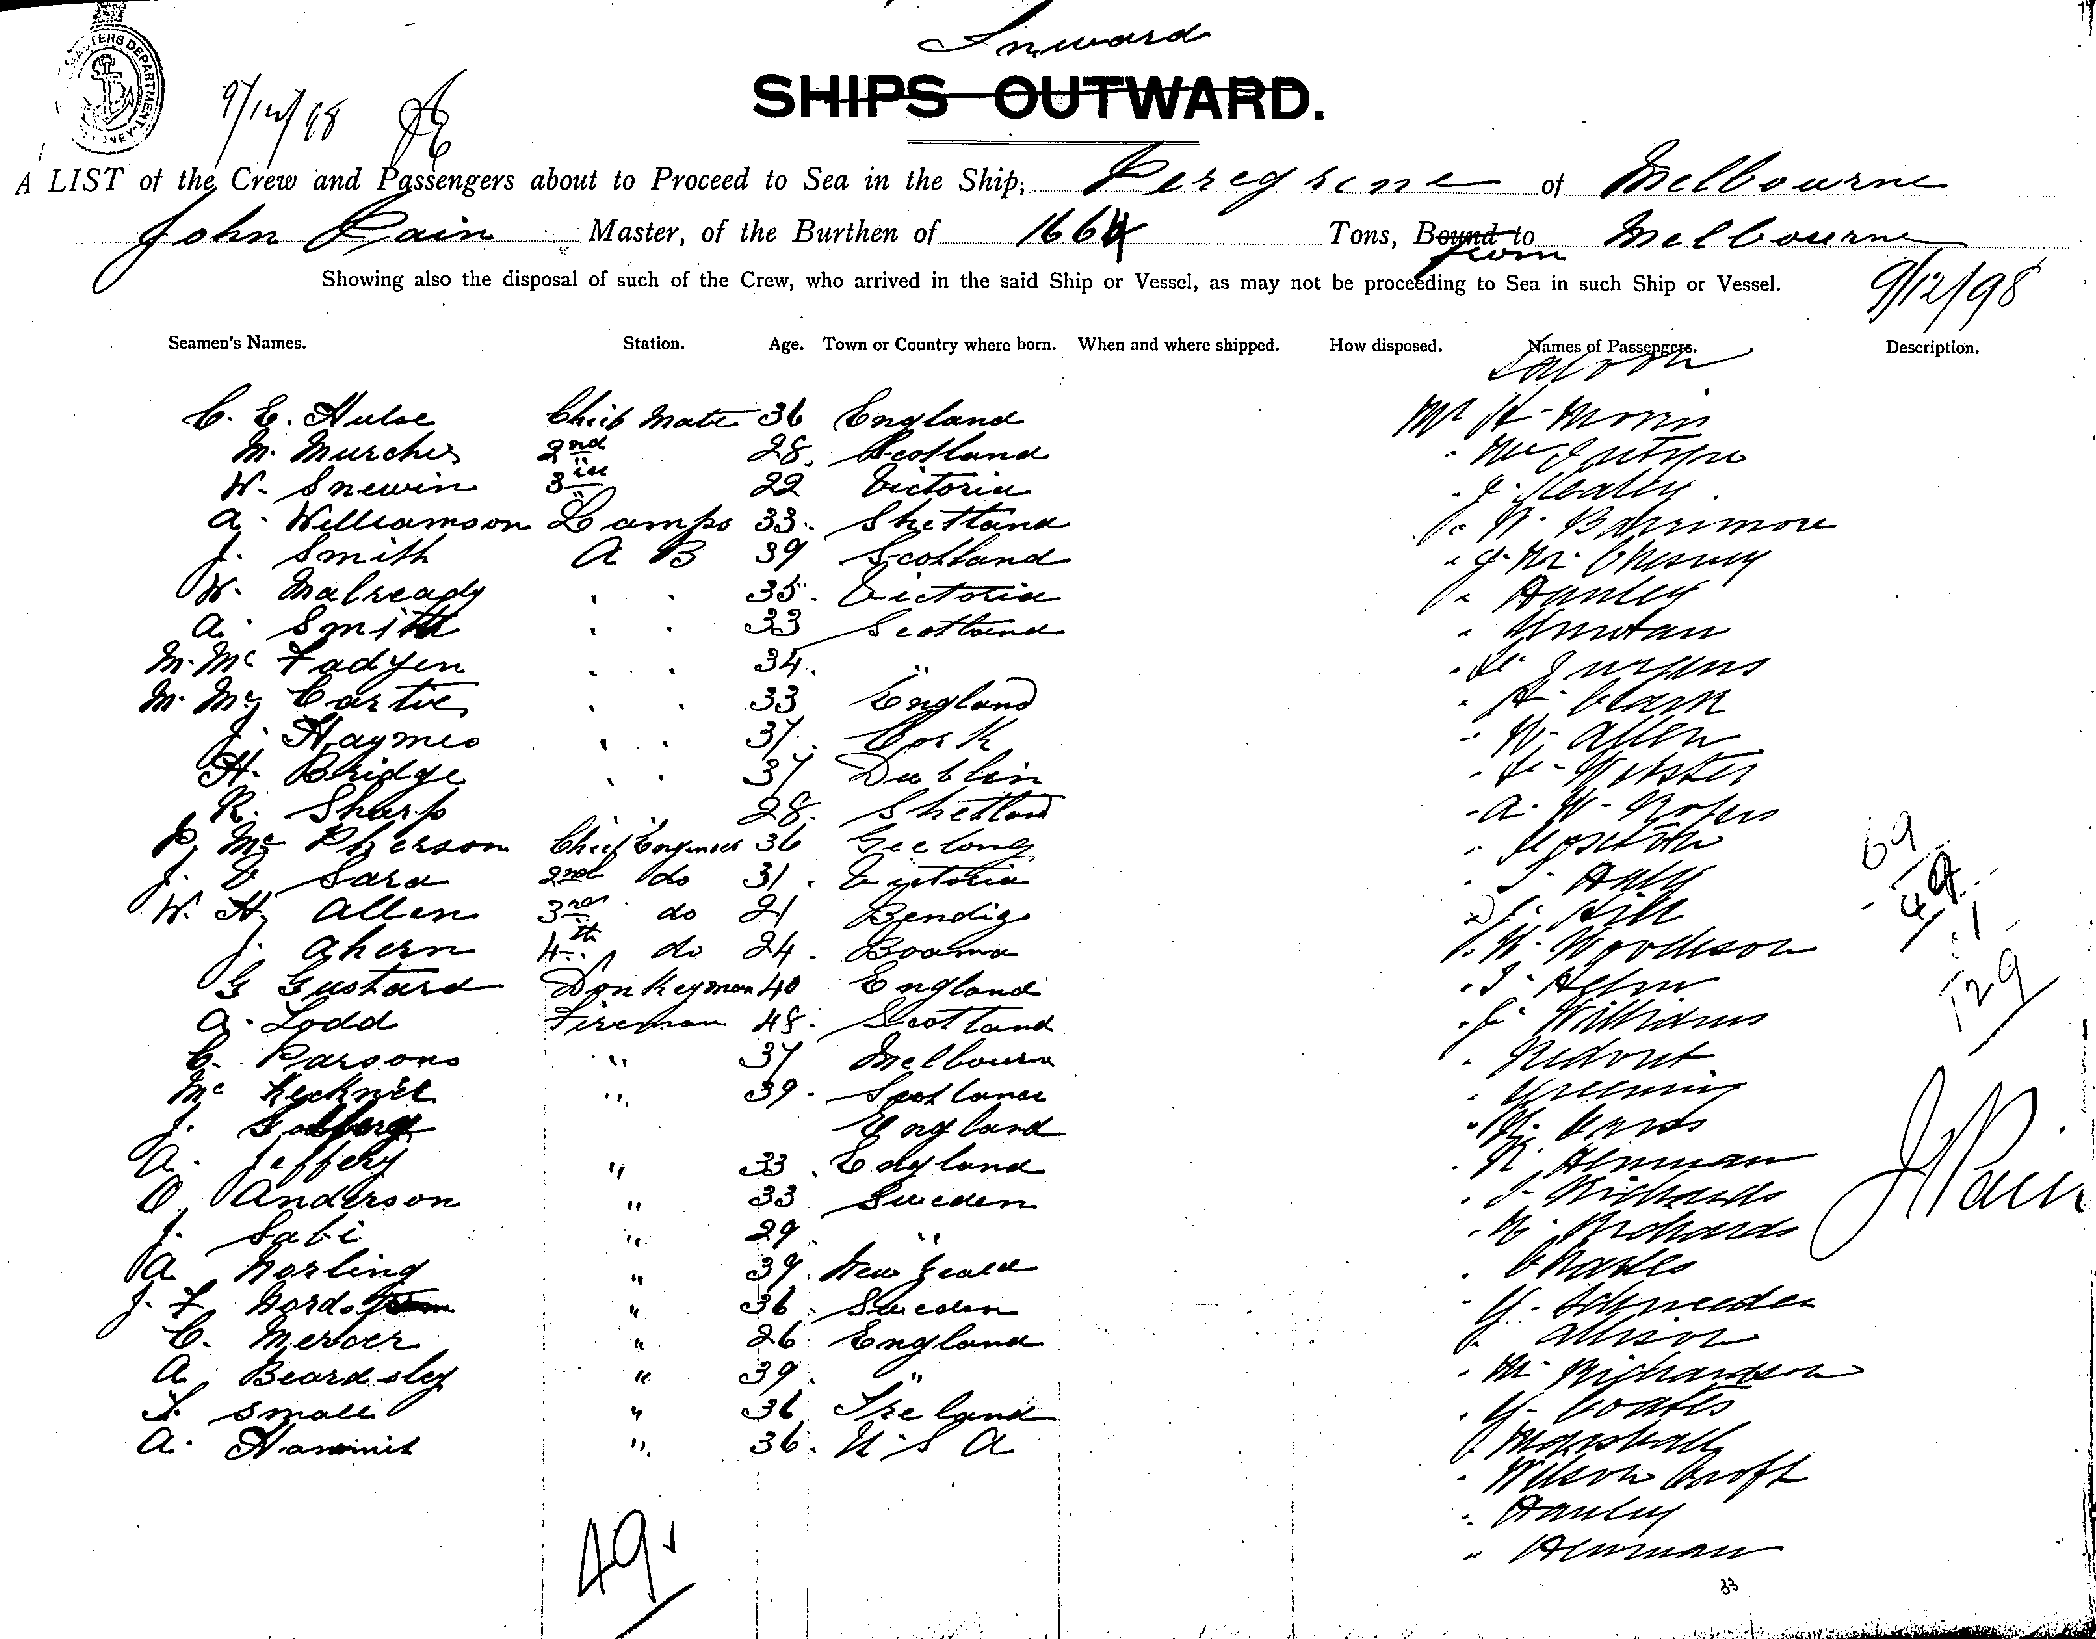 Inward
SHIPS OUTWARD.
9/12/98
A LIST of the Crew and Passengers about to Proceed to Sea in the Ship, Peregrine of Melbourne
John Pain Master, of the Burthen of 1664 Tons, Bound to from Melbourne
Showing also the disposal of such of the Crew, who arrived in the said Ship or Vessel, as may not be proceeding to Sea in such Ship or Vessel.
9/12/98
Seamen's Names. Station. Age. Town or Country where born. When and where shipped. How disposed. Names of Passengers. Description.
Saloon
C. E. Hulse Chief Mate 36 England Mr H. Morris
M. Murchie 2nd 28. Scotland
W. Snewin 3 22 Victoria " J. Healey
A. Williamson Lamps 33. Shetland " W. Barrimore
J. Smith A B 39 Scotland
W. Malready . . 35. Victoria " Hanley
A. Smith . . 33 Scotland
M. Mc Fadyen . . 34. "
M. Mc Cartie . . 33 England " H. Clark
J. Haymes . . 37. Cork " W. Allen
H. Bridge . . 37 Dublin " Webster
R. Sharp . . 28. Shetland " A. W. Rofers
P. Mc Pherson Chief Engineer 36 Geelong
J. Sara 2nd do 31. Victoria
W. H. Allen 3rd do 21 Bendigo " Hill
J. Ahern 4th do 24. " W. Woodison
G Gustard Donkeyman 40 England
A. Todd Fireman 48. Scotland " Williams
C. Parsons " 37 Melbourn
Mc " 39. Scotland " Greening
J. England
A. Jeffery " 33. England " Henman
O. Anderson " 33 Sweden " Richards
J. Sabi " 29 " " Richards
A Norling " 39. New Zeald " Charles
J. F. " 36. Sweden " G. Schneeder
C. Mercer " 26. England " Allison
A. Beardsley " 39. " " M. Richardson
T. Small " 36 Ireland " G. Coates
A. " 36. U S A " Marshall
" Wilson Croft
" Hanley
" Henman
33
69
49
129
J Pain
49